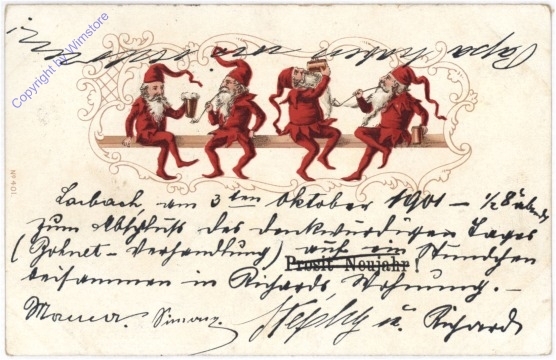 Copyright by Wimstore
Papa
No 401
Laibach am 3ten Oktober 1901 – 1/2 8 abends
zum Abschluss des denkwürdigen Tages
(Bohnet-Verhandlung) auf ein Stündchen
Prosit Neujahr!
beisammen in Richards Wohnung. –
Mama. Simon. u. Richard